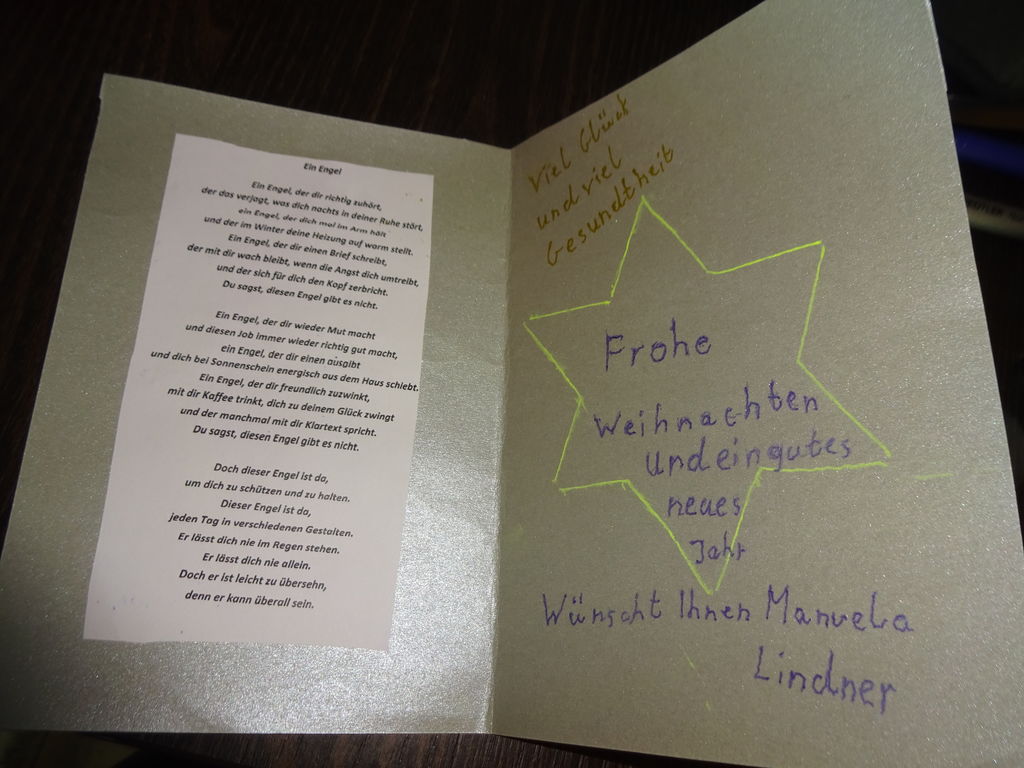 Ein Engel
Ein Engel, der dir richtig zuhört,
der das verjagt, was dich nachts in deiner Ruhe stört,
ein Engel, der dich mal im Arm hält
und der im Winter deine Heizung auf warm stellt.
Ein Engel, der dir einen Brief schreibt,
der mit dir wach bleibt, wenn die Angst dich umtreibt,
und der sich für dich den Kopf zerbricht.
Du sagst, diesen Engel gibt es nicht.
Ein Engel, der dir wieder Mut macht
und diesen Job immer wieder richtig gut macht,
ein Engel, der dir einen ausgibt
und dich bei Sonnenschein energisch aus dem Haus schiebt.
Ein Engel, der dir freundlich zuzwinkt,
mit dir Kaffee trinkt, dich zu deinem Glück zwingt
und der manchmal mit dir Klartext spricht.
Du sagst, diesen Engel gibt es nicht.
Doch dieser Engel ist da,
um dich zu schützen und zu halten.
Dieser Engel ist da,
jeden Tag in verschiedenen Gestalten.
Er lässt dich nie im Regen stehen.
Er lässt dich nie allein.
Doch er ist leicht zu übersehn,
denn er kann überall sein.
Viel Glück
und viel
Gesundtheit
Frohe
Weihnachten
und ein gutes
neues
Jahr
Wünscht Ihnen Manuela
Lindner